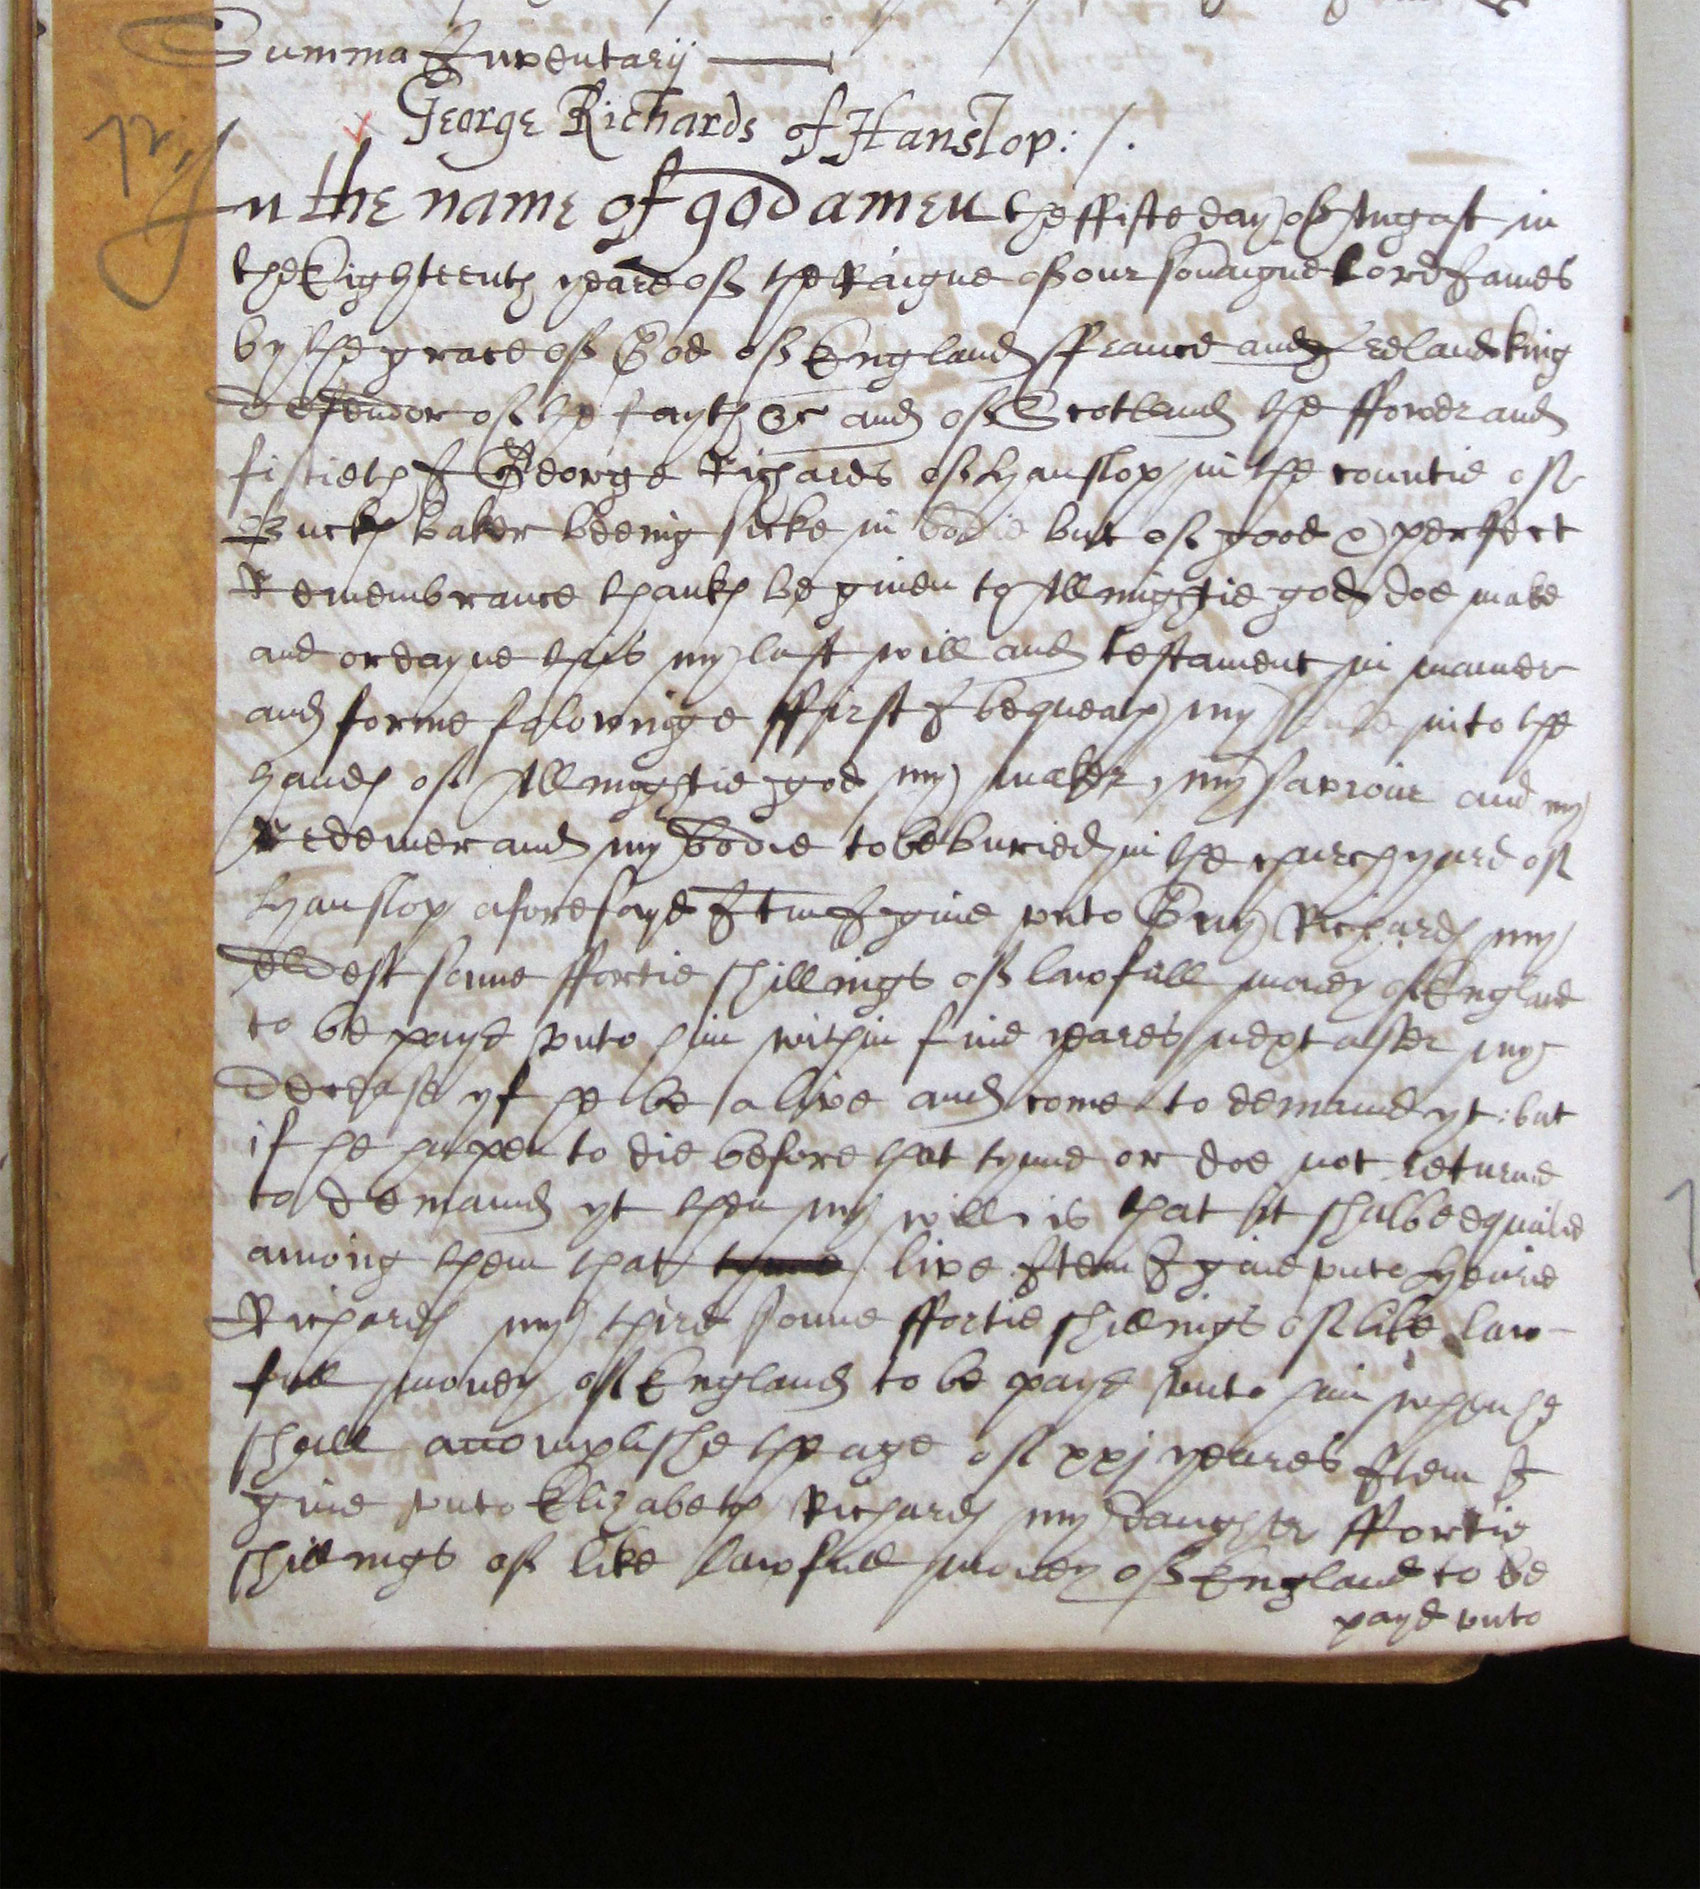 Summa Inventarij
George Richards of Hanslop:/.
In the name of god amen the ffifte day of August in
the Eighteenth yeare of the Raigne of our soveraigne Lord James
by the grace of God of England ffrance and Ireland king
defendor of the fayth &c and of Scotland the ffower and
fiftieth I George Richards of Hanslop in the countie of
Buck baker beeing sicke in bodie but of good & perffect
Remembrance thankes be given to Allmightie god doe make
and ordayne this my last will and testament in manner
and forme folowinge ffirst I bequeath my soule into the
handes of Allmightie god my maker, my saviour and my
Redemer and my bodie to be buried in the church yard of
Hanslop aforesayd Itm I give vnto Guy Richardes my
eldest sonne ffortie shillings of lawfull money of England
to be payd vnto him within five yeares next after my
decease yf he be alive and come to demand yt: but
if he hapen to die before that tyme or doe not returne
to demand yt then my will is that it shalbe equalie
among them that live Item I give vnto Henrie
Richardes my third sonne ffortie shillings of like law-
full money of England to be payd vnto him when he
shall accomplishe the age of xxj yeares Item I
give vnto Elizabeth Richardes my daughter ffortie
shillings of like lawfull money of England to be
payd vnto